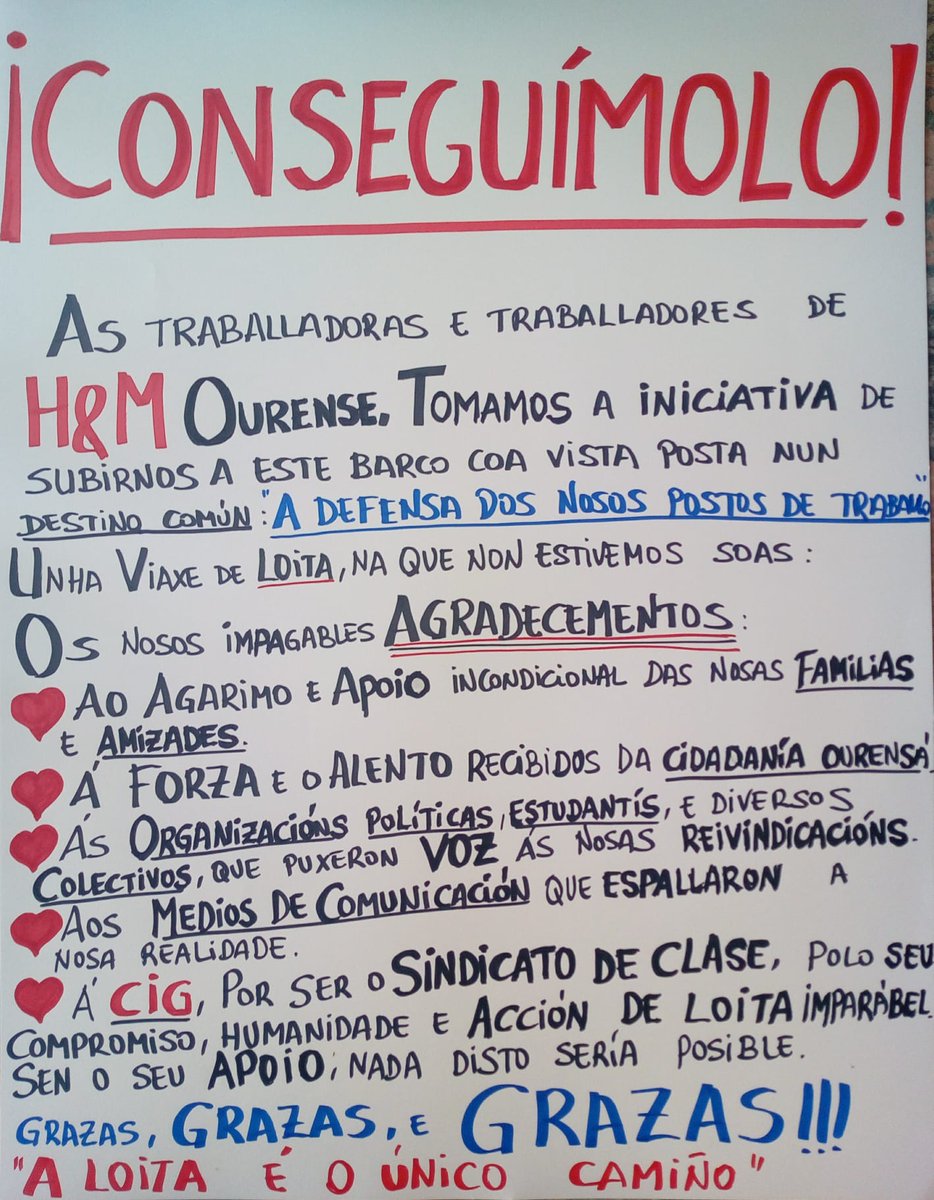 ¡CONSEGUÍMOLO!
AS TRABALLADORAS E TRABALLADORES DE
H&M OURENSE. TOMAMOS A INICIATIVA DE
SUBIRNOS A ESTE BARCO COA VISTA POSTA NUN
DESTINO COMÚN: "A DEFENSA DOS NOSOS POSTOS DE TRABALLO"
UNHA VIAXE DE LOITA, NA QUE NON ESTIVEMOS SOAS:
OS NOSOS IMPAGABLES AGRADECEMENTOS:
AO AGARIMO E APOIO INCONDICIONAL DAS NOSAS FAMILIAS
E AMIZADES.
Á FORZA E O ALENTO RECIBIDOS DA CIDADANÍA OURENSÁ
ÁS ORGANIZACIÓNS POLÍTICAS, ESTUDANTÍS, E DIVERSOS
COLECTIVOS, QUE PUXERON VOZ ÁS NOSAS REIVINDICACIÓNS.
AOS MEDIOS DE COMUNICACIÓN QUE ESPALLARON A
NOSA REALIDADE.
Á CIG, POR SER O SINDICATO DE CLASE, POLO SEU
COMPROMISO, HUMANIDADE E ACCIÓN DE LOITA IMPARÁBEL.
SEN O SEU APOIO, NADA DISTO SERÍA POSIBLE.
GRAZAS, GRAZAS, E GRAZAS!!!
"A LOITA É O ÚNICO CAMIÑO"